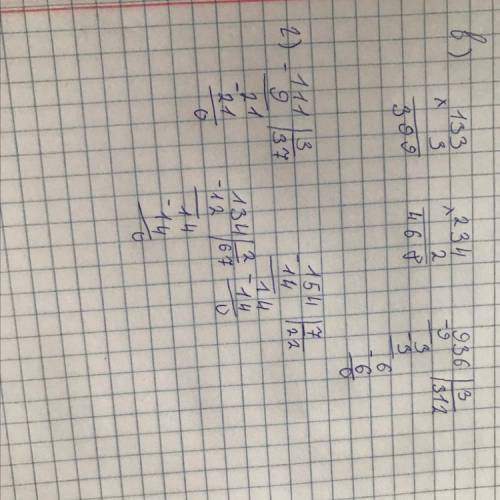 в)
133
× 3
399
234
× 2
468
936 | 3
-9 | 312
3
-3
6
-6
0
г)
111 | 3
-9 | 37
21
-21
0
134 | 2
-12 | 67
14
-14
0
154 | 7
-14 | 22
14
-14
0